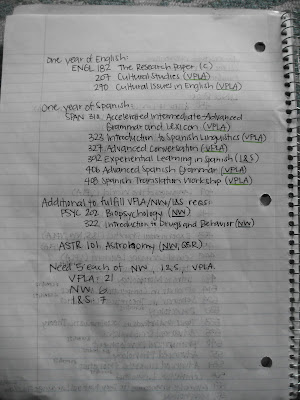 One year of English:
ENGL 182 The Research Paper (C)
207 Cultural Studies (VPLA)
290 Cultural Issues in English (VPLA)
One year of Spanish:
SPAN 310 Accelerated Intermediate-Advanced
Grammar and Lexicon (VPLA)
323 Introduction to Spanish Linguistics (VPLA)
327 Advanced Conversation (VPLA)
392 Experiential Learning in Spanish (I&S)
406 Advanced Spanish Grammar (VPLA)
408 Spanish Translation Workshop (VPLA)
Additional to fulfill VPLA/NW/I&S reqs:
PSYC 202 Biopsychology (NW)
322 Introduction to Drugs and Behavior (NW)
ASTR 101 Astronomy (NW, QSR)
Need 5 each of NW, I&S, VPLA.
VPLA: 21
NW: 6
I&S: 7